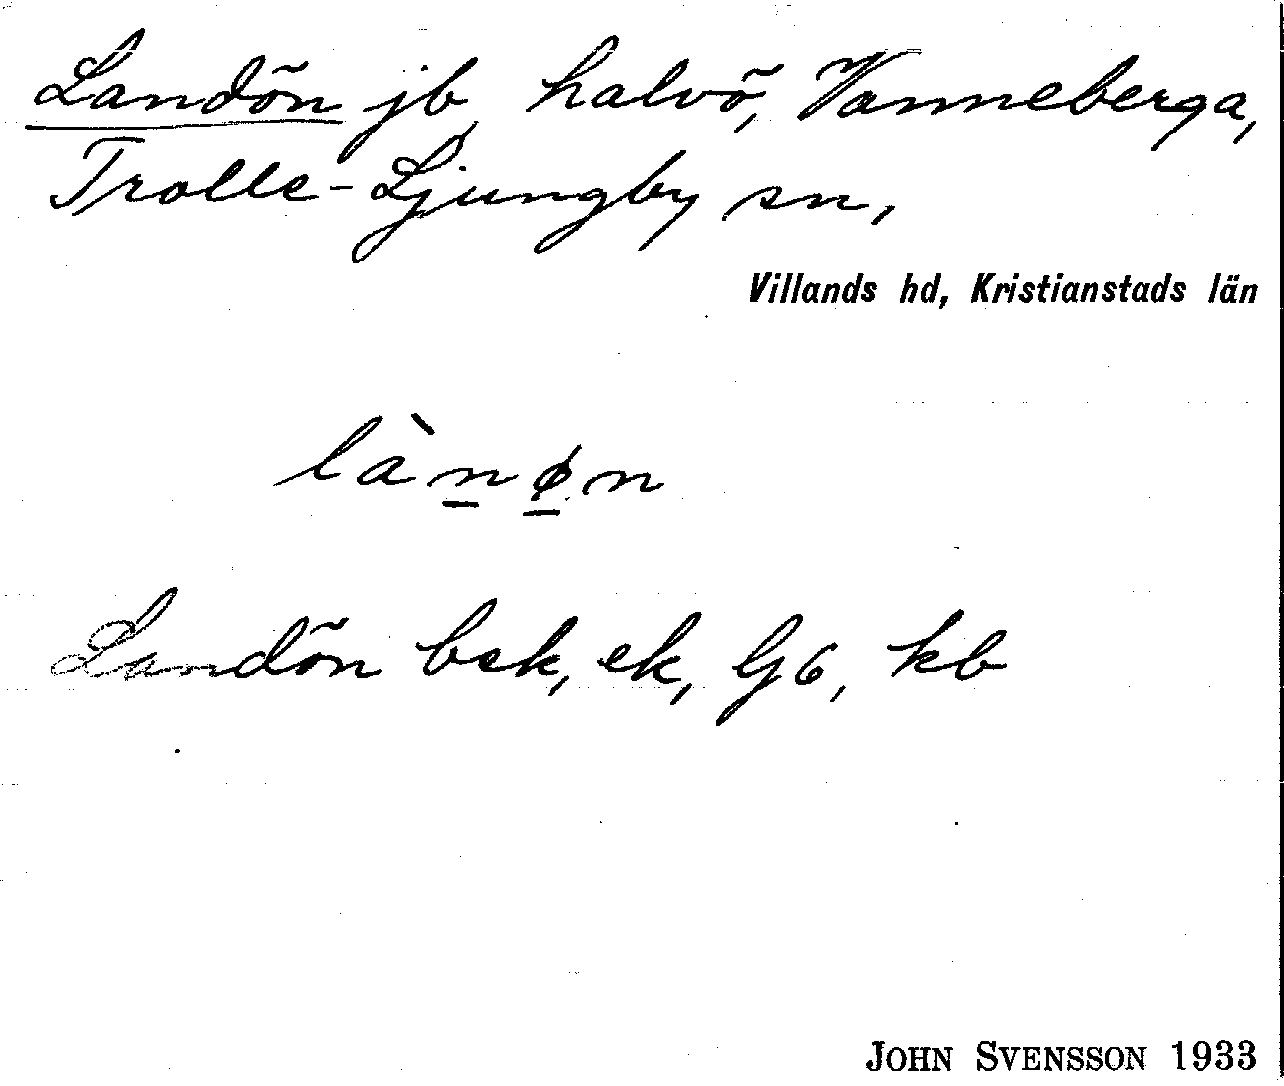 Landön jb, halvö, Vanneberga,
Trolle-Ljungby sn,
Villands hd, Kristianstads län
làn̲ø̲n
Landön bek, ek, G6, kb
JOHN SVENSSON 1933